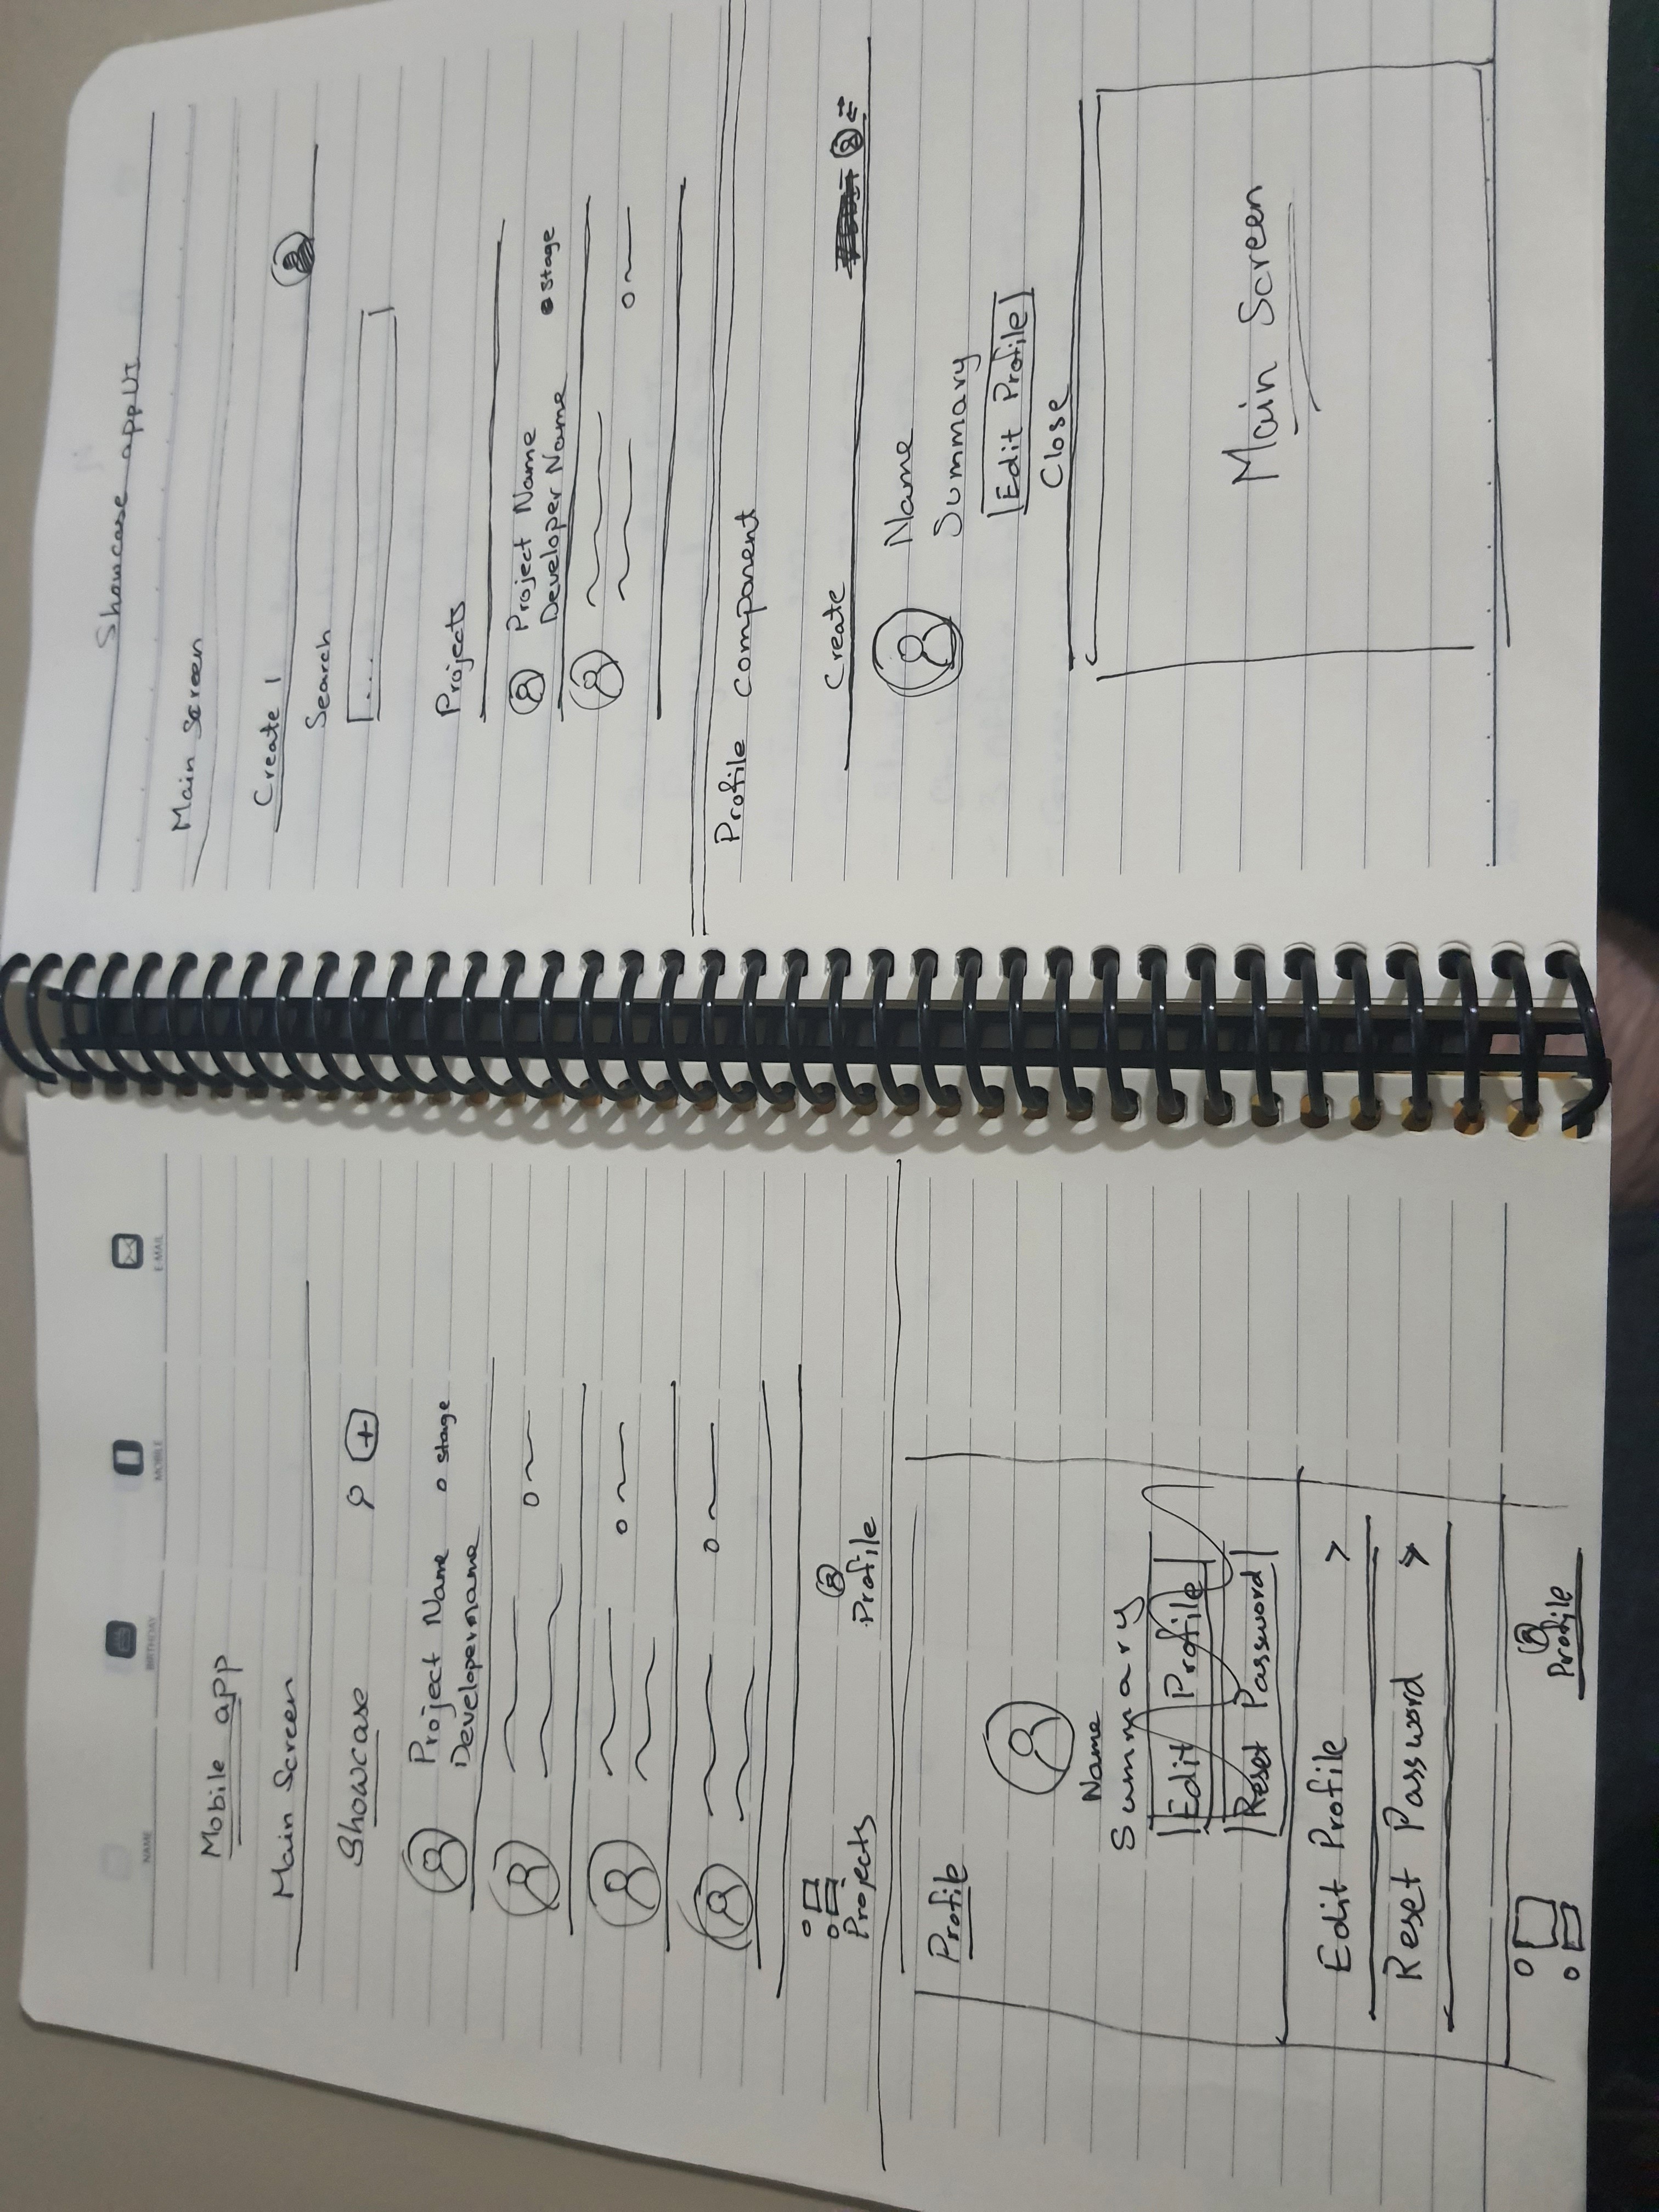 NAME BIRTHDAY MOBILE E-MAIL
Mobile app
Main Screen
Showcase
Project Name stage
Developername
Projects Profile
Profile
Name
Summary
Edit Profile
Reset Password
Edit Profile >
Reset Password >
Profile
Showcase app UI
Main Screen
Create |
Search
...
Projects
Project Name
Developer Name stage
Profile component
Create
Name
Summary
Edit Profile
Close
Main Screen